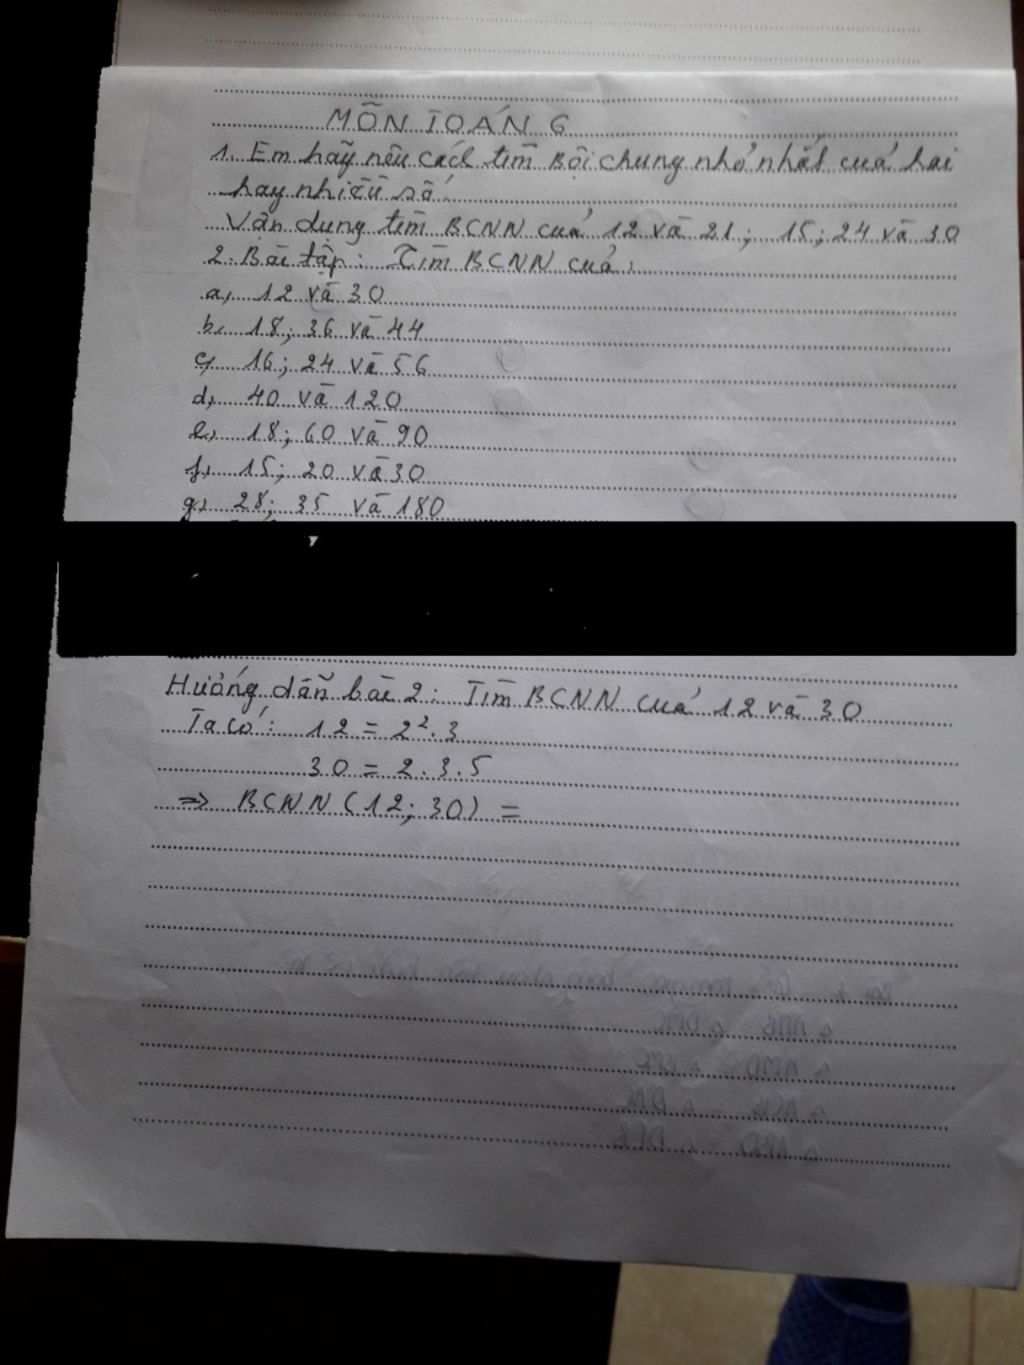 MÔN TOÁN 6
1. Em hãy nêu cách tìm Bội chung nhỏ nhất của hai
hay nhiều số.
Vận dụng tìm BCNN của 12 và 21; 15; 24 và 30
2. Bài tập: Tìm BCNN của:
a, 12 và 30
b, 18; 36 và 44
c, 16; 24 và 56
d, 40 và 120
e, 18; 60 và 90
f, 15; 20 và 30
g, 28; 35 và 180
Hướng dẫn bài 2: Tìm BCNN của 12 và 30
Ta có: 12 = 2².3
30 = 2.3.5
=> BCNN(12; 30) =